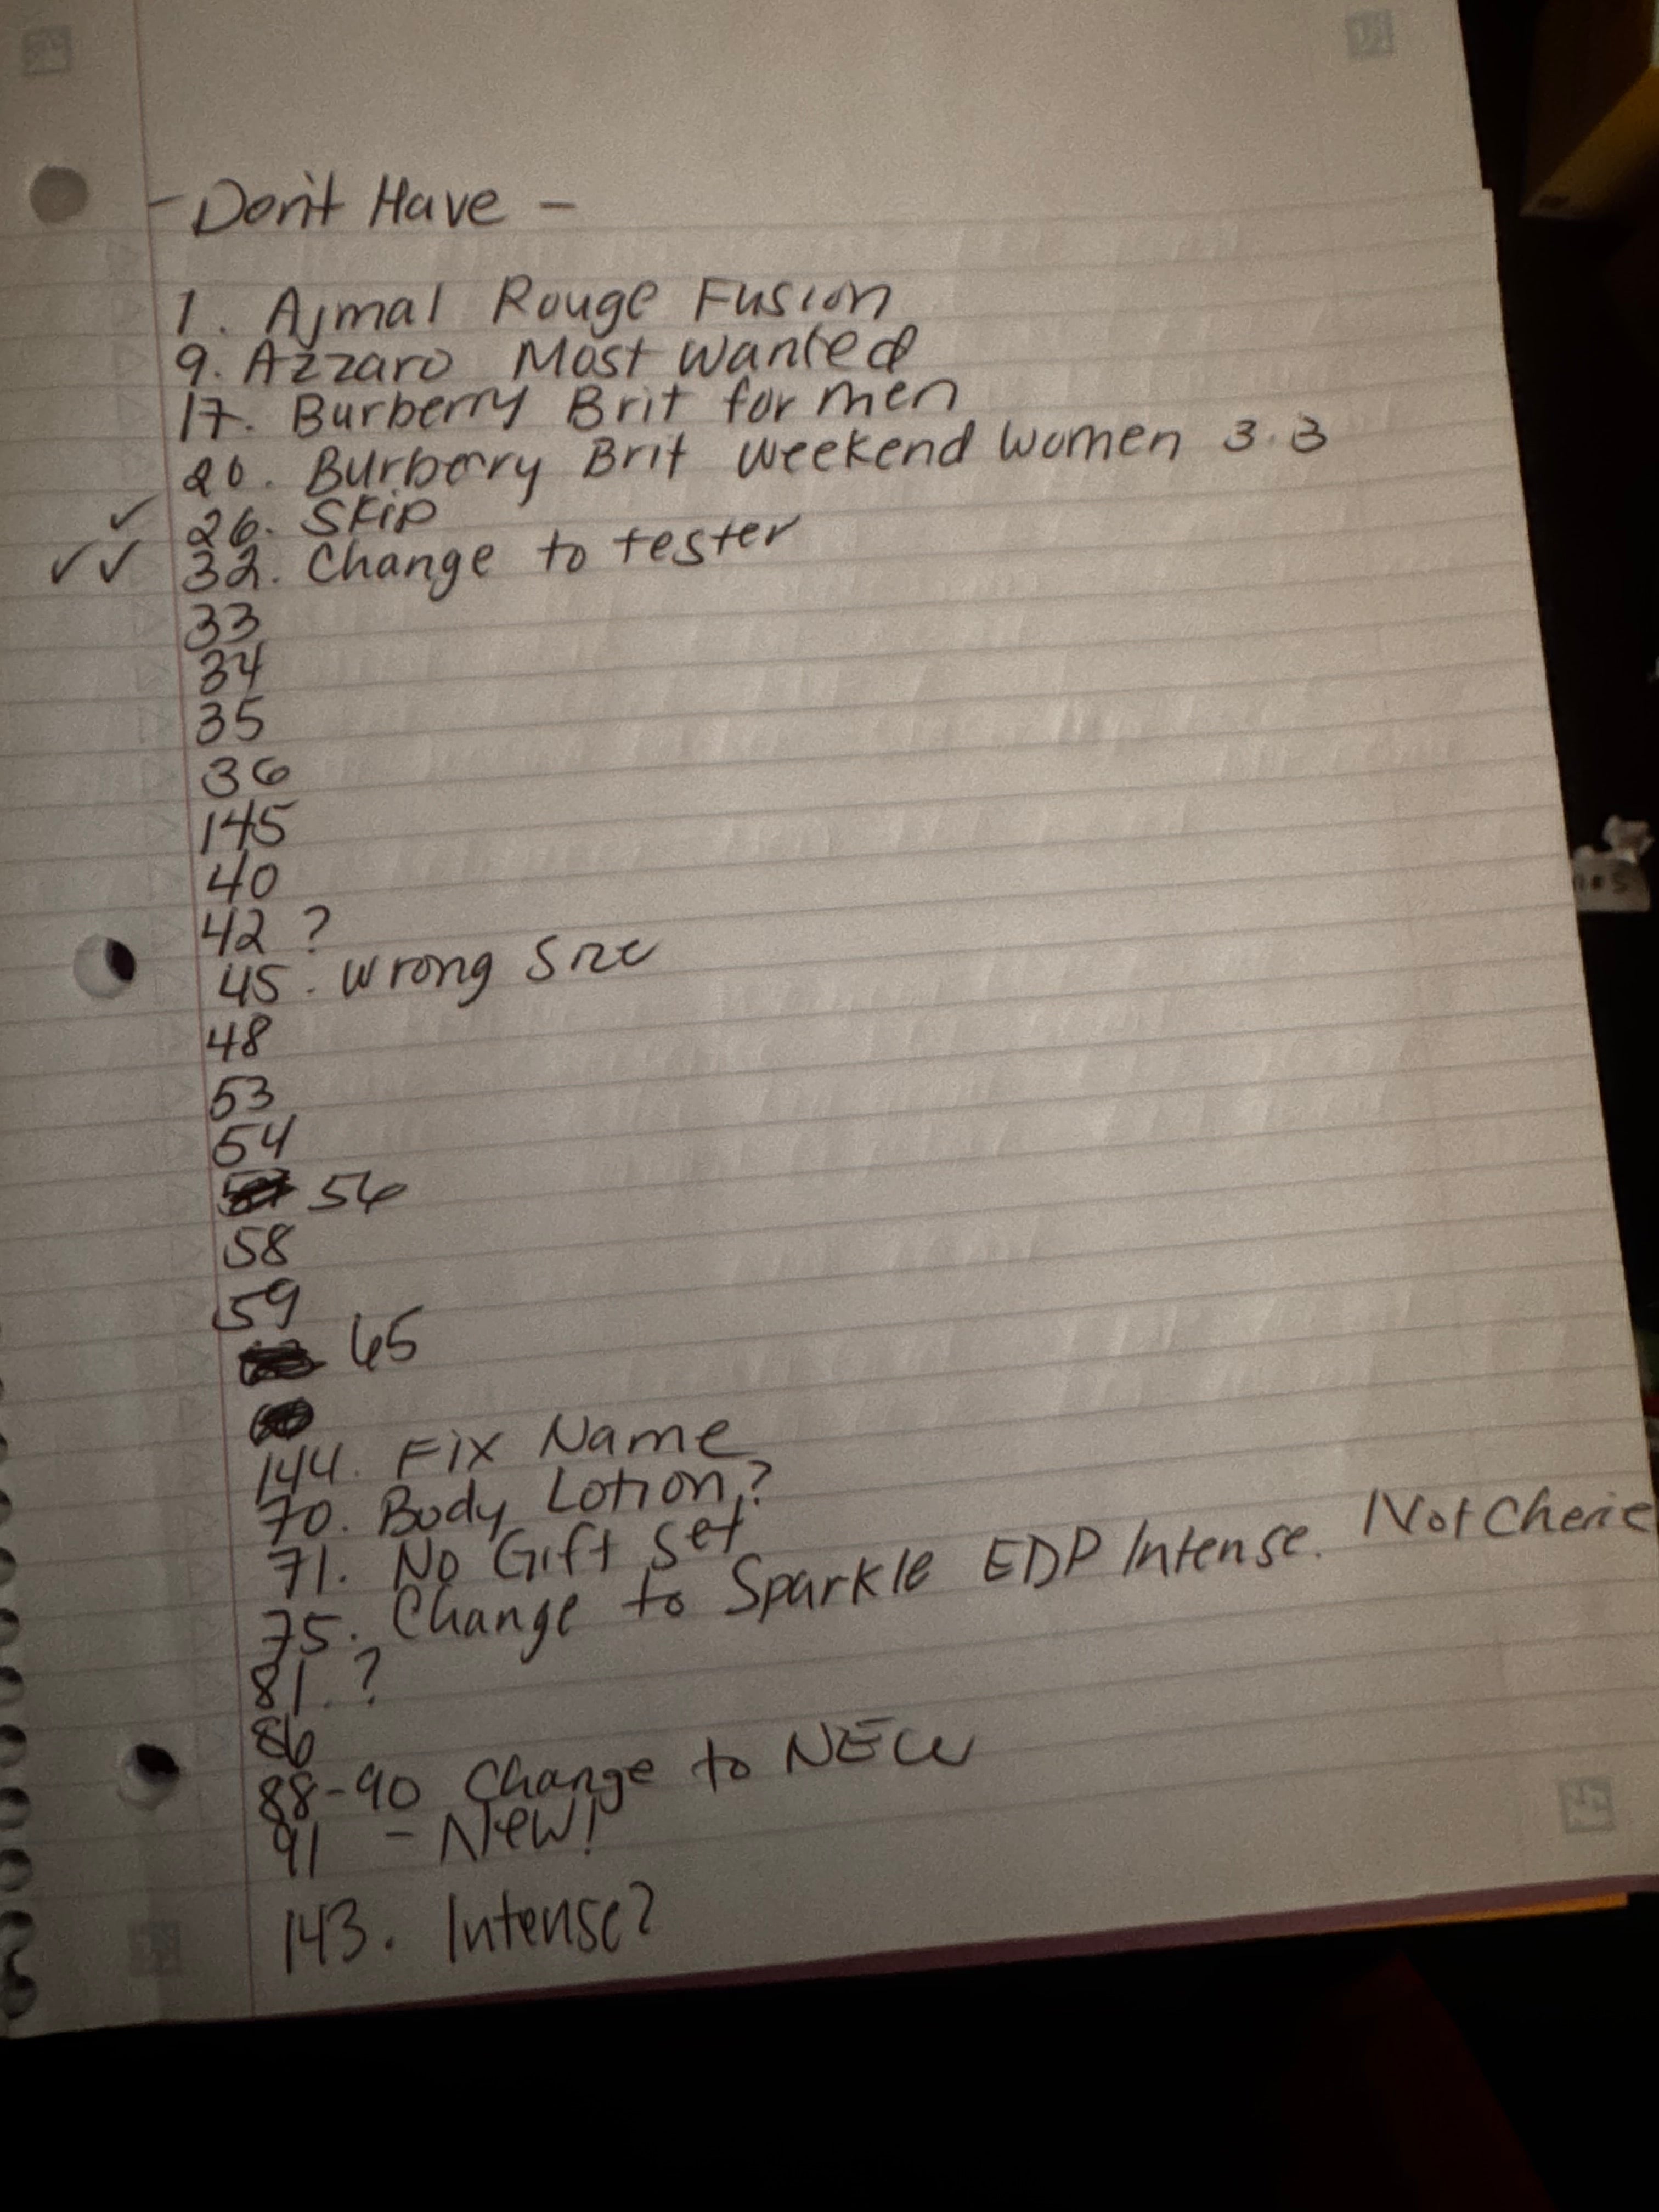 - Don't Have -
1. Ajmal Rouge Fusion
9. Azzaro Most Wanted
17. Burberry Brit for men
20. Burberry Brit Weekend Women 3.3
✓ 26. Skip
✓✓ 32. Change to tester
33
34
35
36
145
40
42 ?
45. Wrong Size
48
53
54
56
58
59
65
144. Fix Name
70. Body Lotion?
71. No Gift Set
75. Change to Sparkle EDP Intense. Not Cherie
81. ?
86
88-90 Change to NEW
91 - New!
143. Intense?